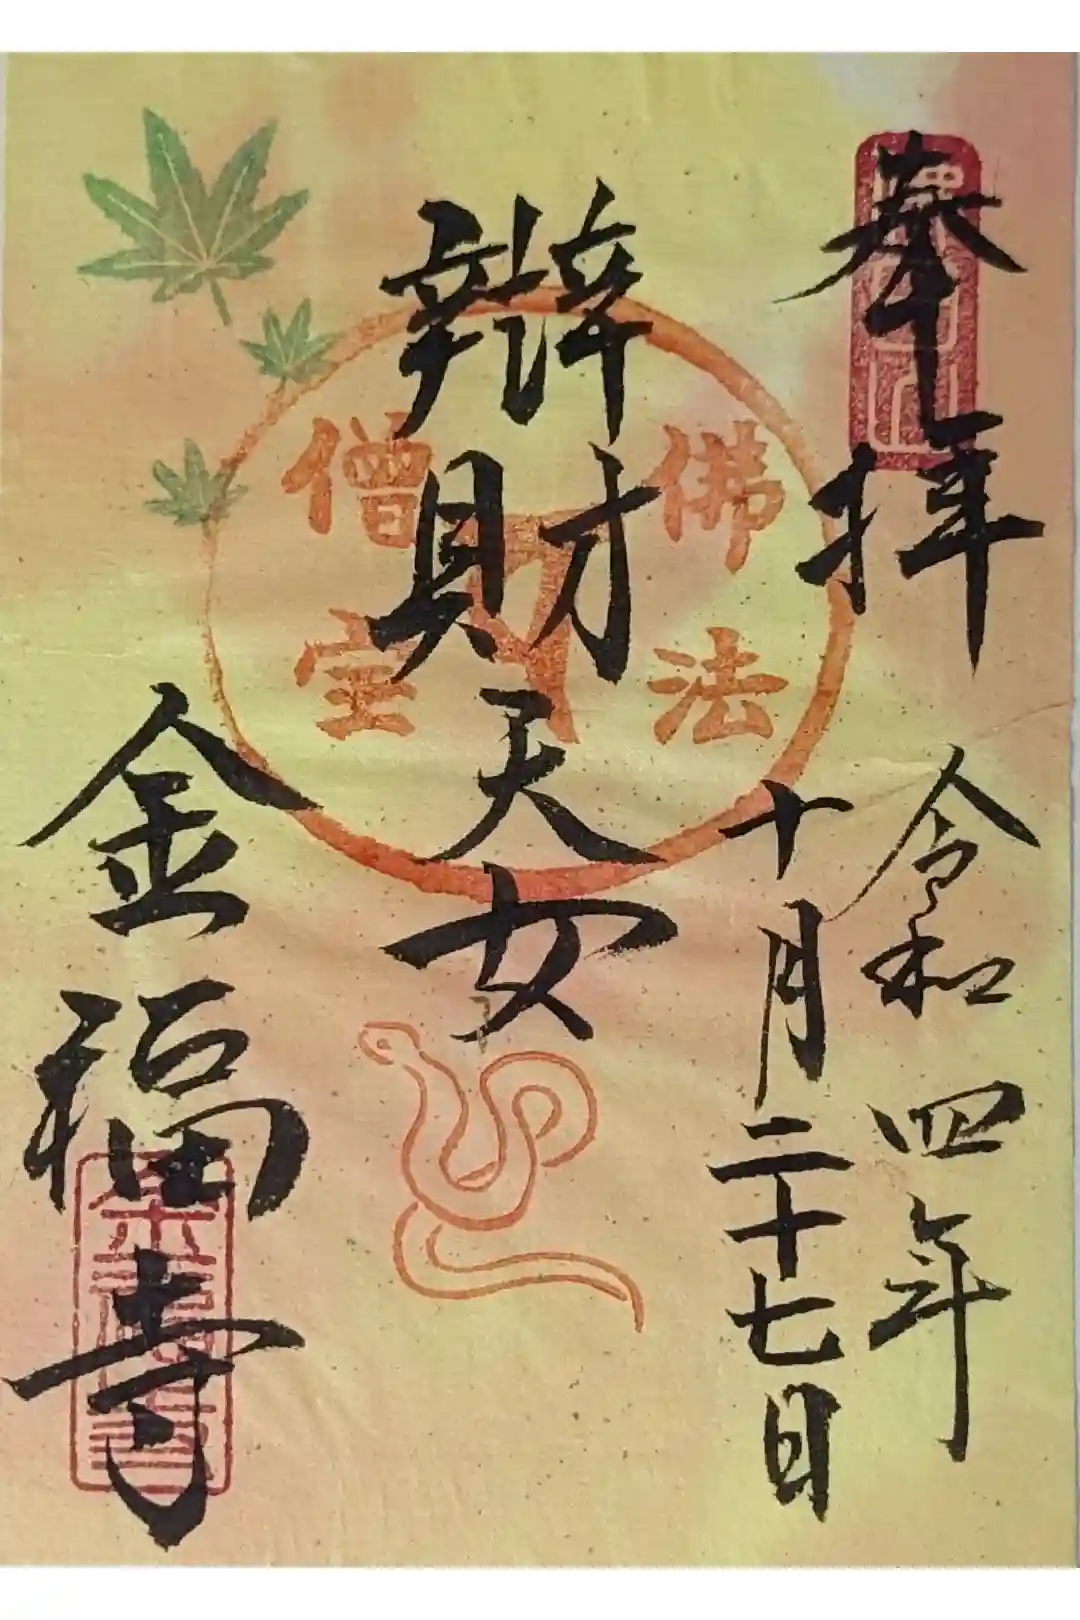 奉拝
令和四年
十月二十七日
辯財天女
佛法
僧宝
金福寺